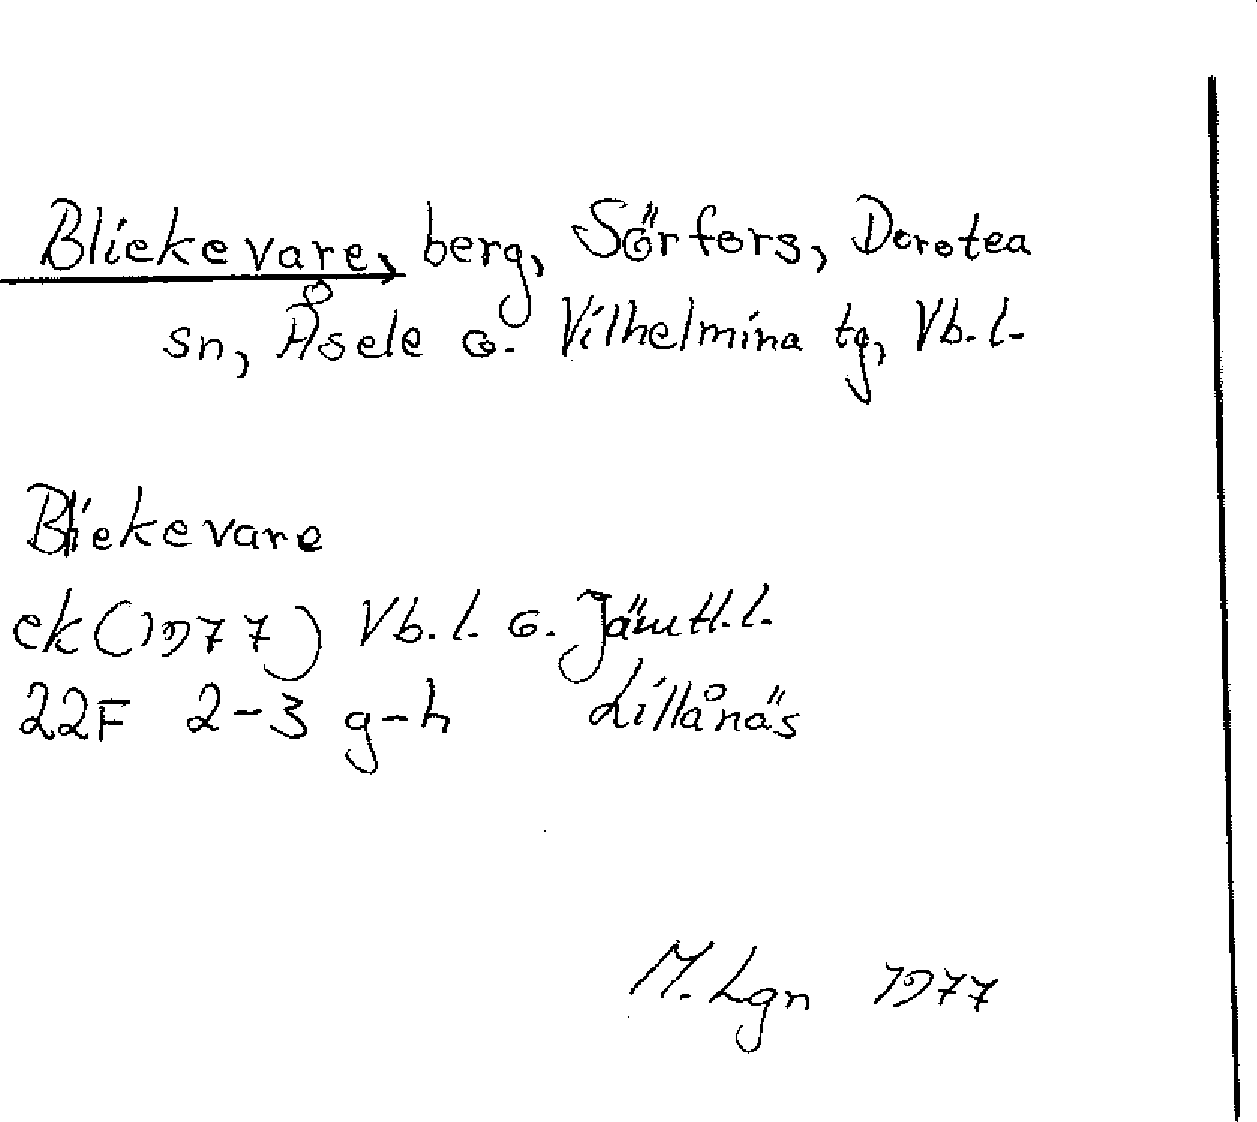 Bliekevare, berg, Sörfors, Dorotea
sn, Åsele o. Vilhelmina tg, Vb. l.
Bliekevare
ek (1977) Vb. l. o. Jämtl. l.
22F 2-3 g-h Lillånäs
M. Lgn 1977